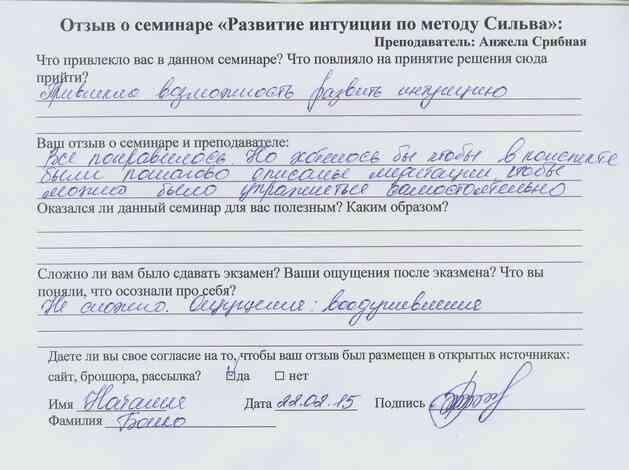 Отзыв о семинаре «Развитие интуиции по методу Сильва»:
Преподаватель: Анжела Срибная
Что привлекло вас в данном семинаре? Что повлияло на принятие решения сюда
прийти?
Привлекло возможность развить интуицию
Ваш отзыв о семинаре и преподавателе:
Все понравилось. Но хотелось бы чтобы в конспекте
были пошагово описаны медитации чтобы
можно было упражняться самостоятельно
Оказался ли данный семинар для вас полезным? Каким образом?
Сложно ли вам было сдавать экзамен? Ваши ощущения после экзамена? Что вы
поняли, что осознали про себя?
Не сложно. Ощущения: воодушевления
Даете ли вы свое согласие на то, чтобы ваш отзыв был размещен в открытых источниках:
сайт, брошюра, рассылка? да нет
Имя Наталия Дата 22.02.15 Подпись
Фамилия